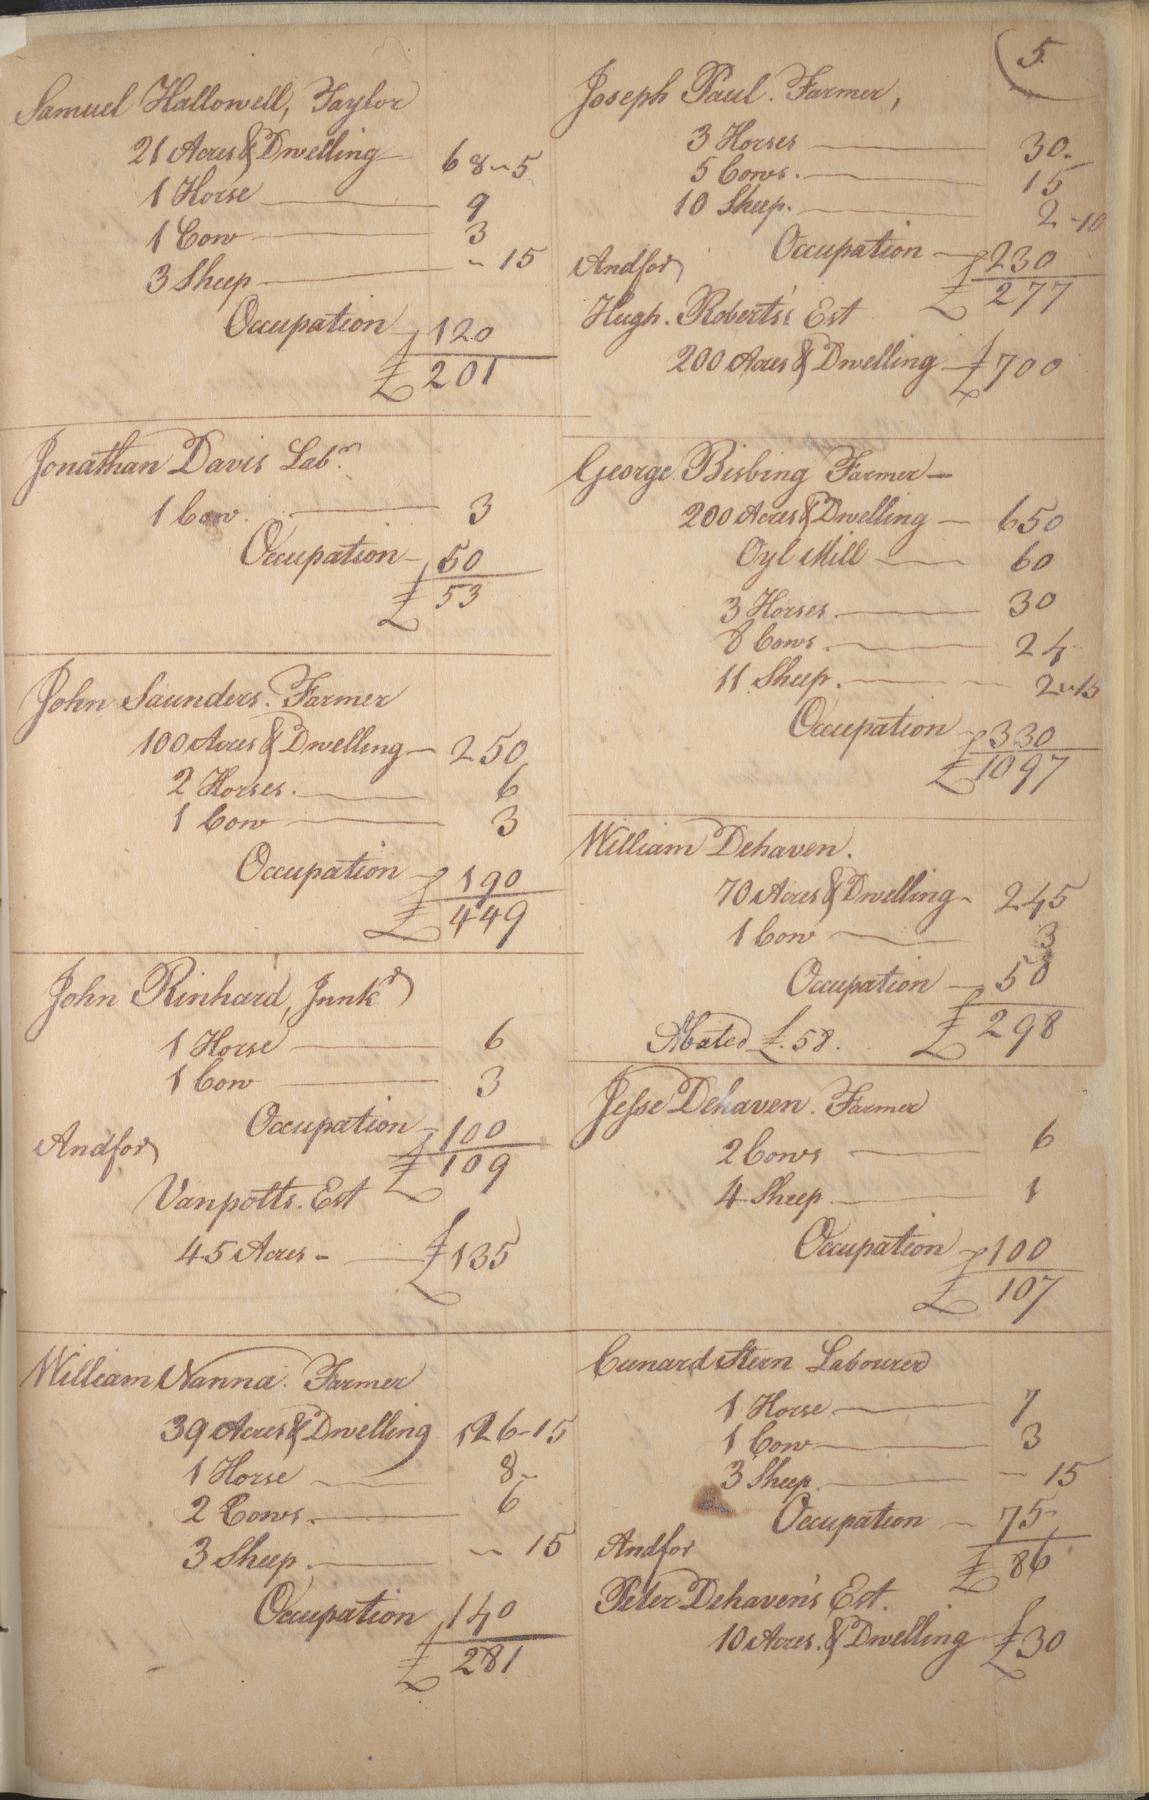 5.
Samuel Hallowell, Taylor
21 Acres & Dwelling — 68 ~ 5
1 Horse — 9
1 Cow — 3
3 Sheep — ~ 15
Occupation — 120
£ 201
Jonathan Davis Labr.
1 Cow. — 3
Occupation — 50
£ 53
John Saunders. Farmer
100 Acres & Dwelling — 250
2 Horses. — 6
1 Cow — 3
Occupation — 190
£ 449
John Rinhard, Innkr
1 Horse — 6
1 Cow — 3
Occupation — 100
And for £ 109
Vanpotts. Est
45 Acres - — £ 135
William Nanna. Farmer
39 Acres & Dwelling 126-15
1 Horse — 8 ~
2 Cows. — 6
3 Sheep. — ~ 15
Occupation 140
£ 281
Joseph Paul. Farmer,
3 Horses — 30.
5 Cows. — 15
10 Sheep. — 2-10
Occupation — 230
And for £ 277
Hugh. Roberts's Est
200 Acres & Dwelling — £ 700
George Bisbing Farmer —
200 Acres & Dwelling — 650
Oyl Mill — 60
3 Horses. — 30
8 Cows. — 24
11 Sheep. — 2 ~ 15
Occupation — 330
£ 1097
William Dehaven.
70 Acres & Dwelling - 245
1 Cow — 3
Occupation — 50
Abated £. 58. £ 298
Jesse Dehaven. Farmer
2 Cows — 6
4 Sheep — 1
Occupation — 100
£ 107
Cunard Stern Labourer
1 Horse — 7
1 Cow — 3
3 Sheep. — ~ 15
Occupation — 75
And for £ 86
Peter Dehaven's Est.
10 Acres. & Dwelling £ 30